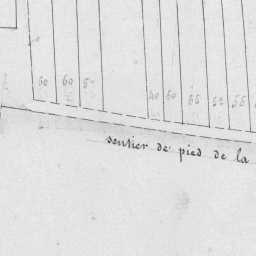 60 60 5 40 60 55 50 55
sentier de pied de la